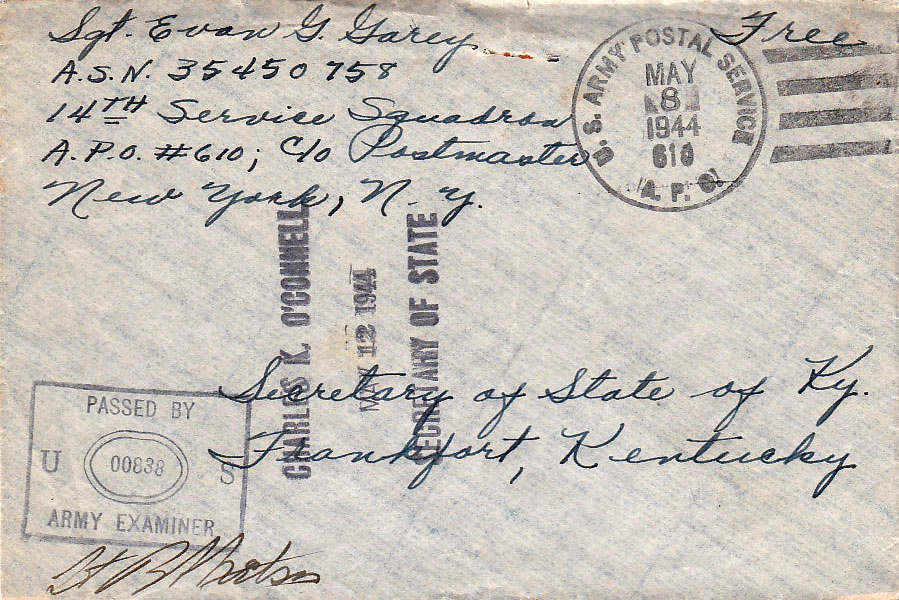 Sgt. Evan G. Garey
A.S.N. 35450758
14TH Service Squadron
A.P.O. #610; C/o Postmaster
New York, N.Y.
Free
U. S. ARMY POSTAL SERVICE
MAY
8
1944
610
A. P. O.
CHARLES K. O'CONNELL
MAY 12 1944
SECRETARY OF STATE
Secretary of State of Ky.
Frankfort, Kentucky
PASSED BY
U 00838 S
ARMY EXAMINER